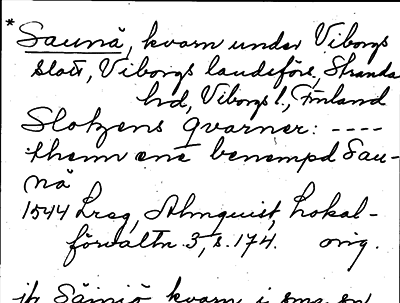 * Saunä, kvarn under Viborgs
slott, Viborgs landsförs., Stranda
hd, Viborgs l., Finland
Slotzens qvarner: ----
them ene benempd Sau-
nä
1544 Lrsg, Almquist, Lokal-
förvaltn. 3, s. 174. orig.
jfr Säiniö kvarn i sms. sn